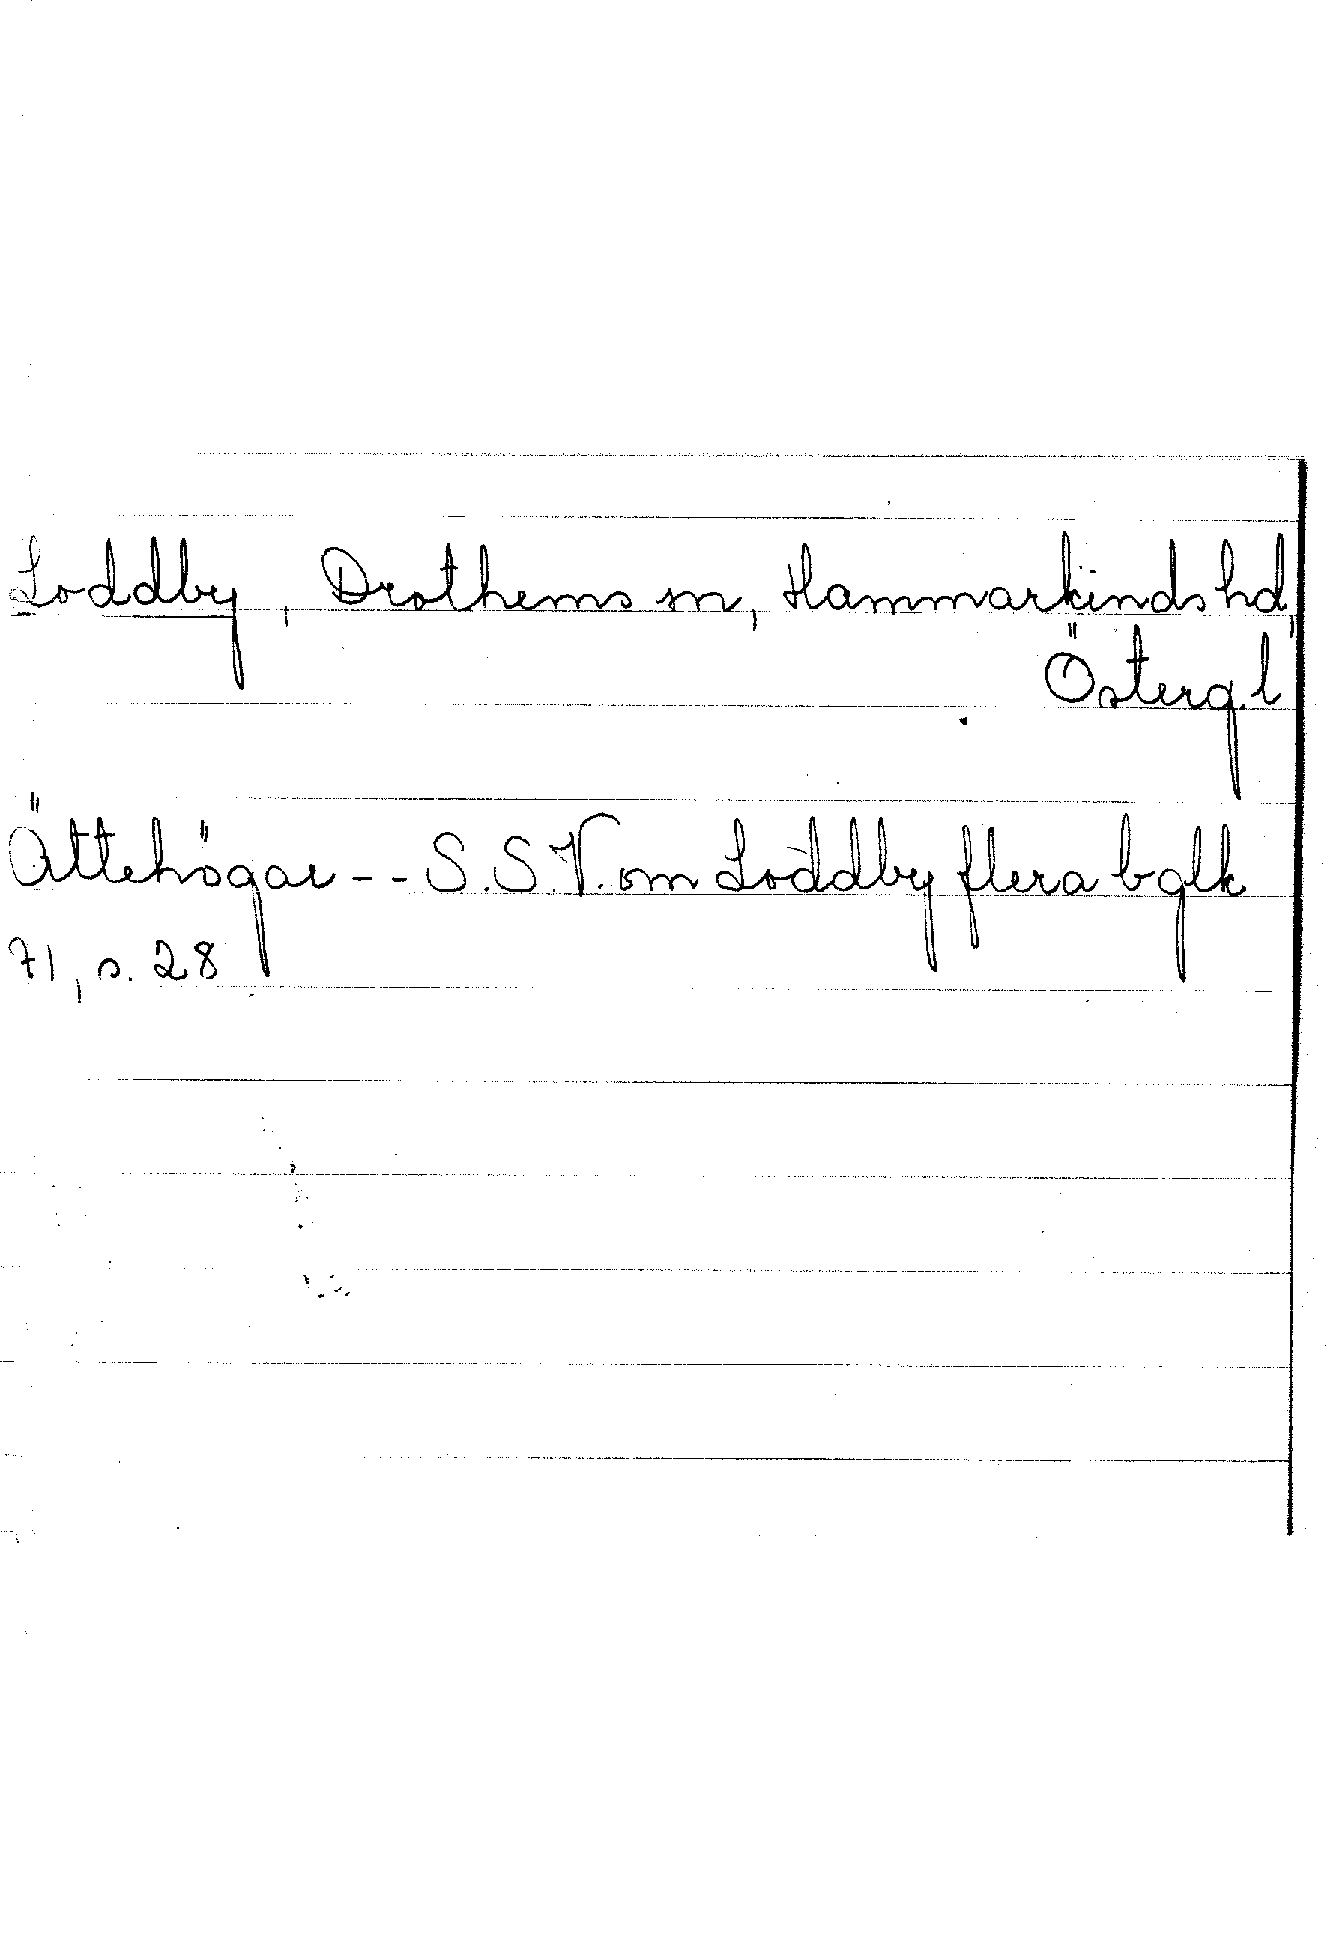 Loddby, Drothems sn, Hammarkinds hd,
Österg. l
Ättehögar -- S.S.V. om Loddby flera bglk
71, s. 28